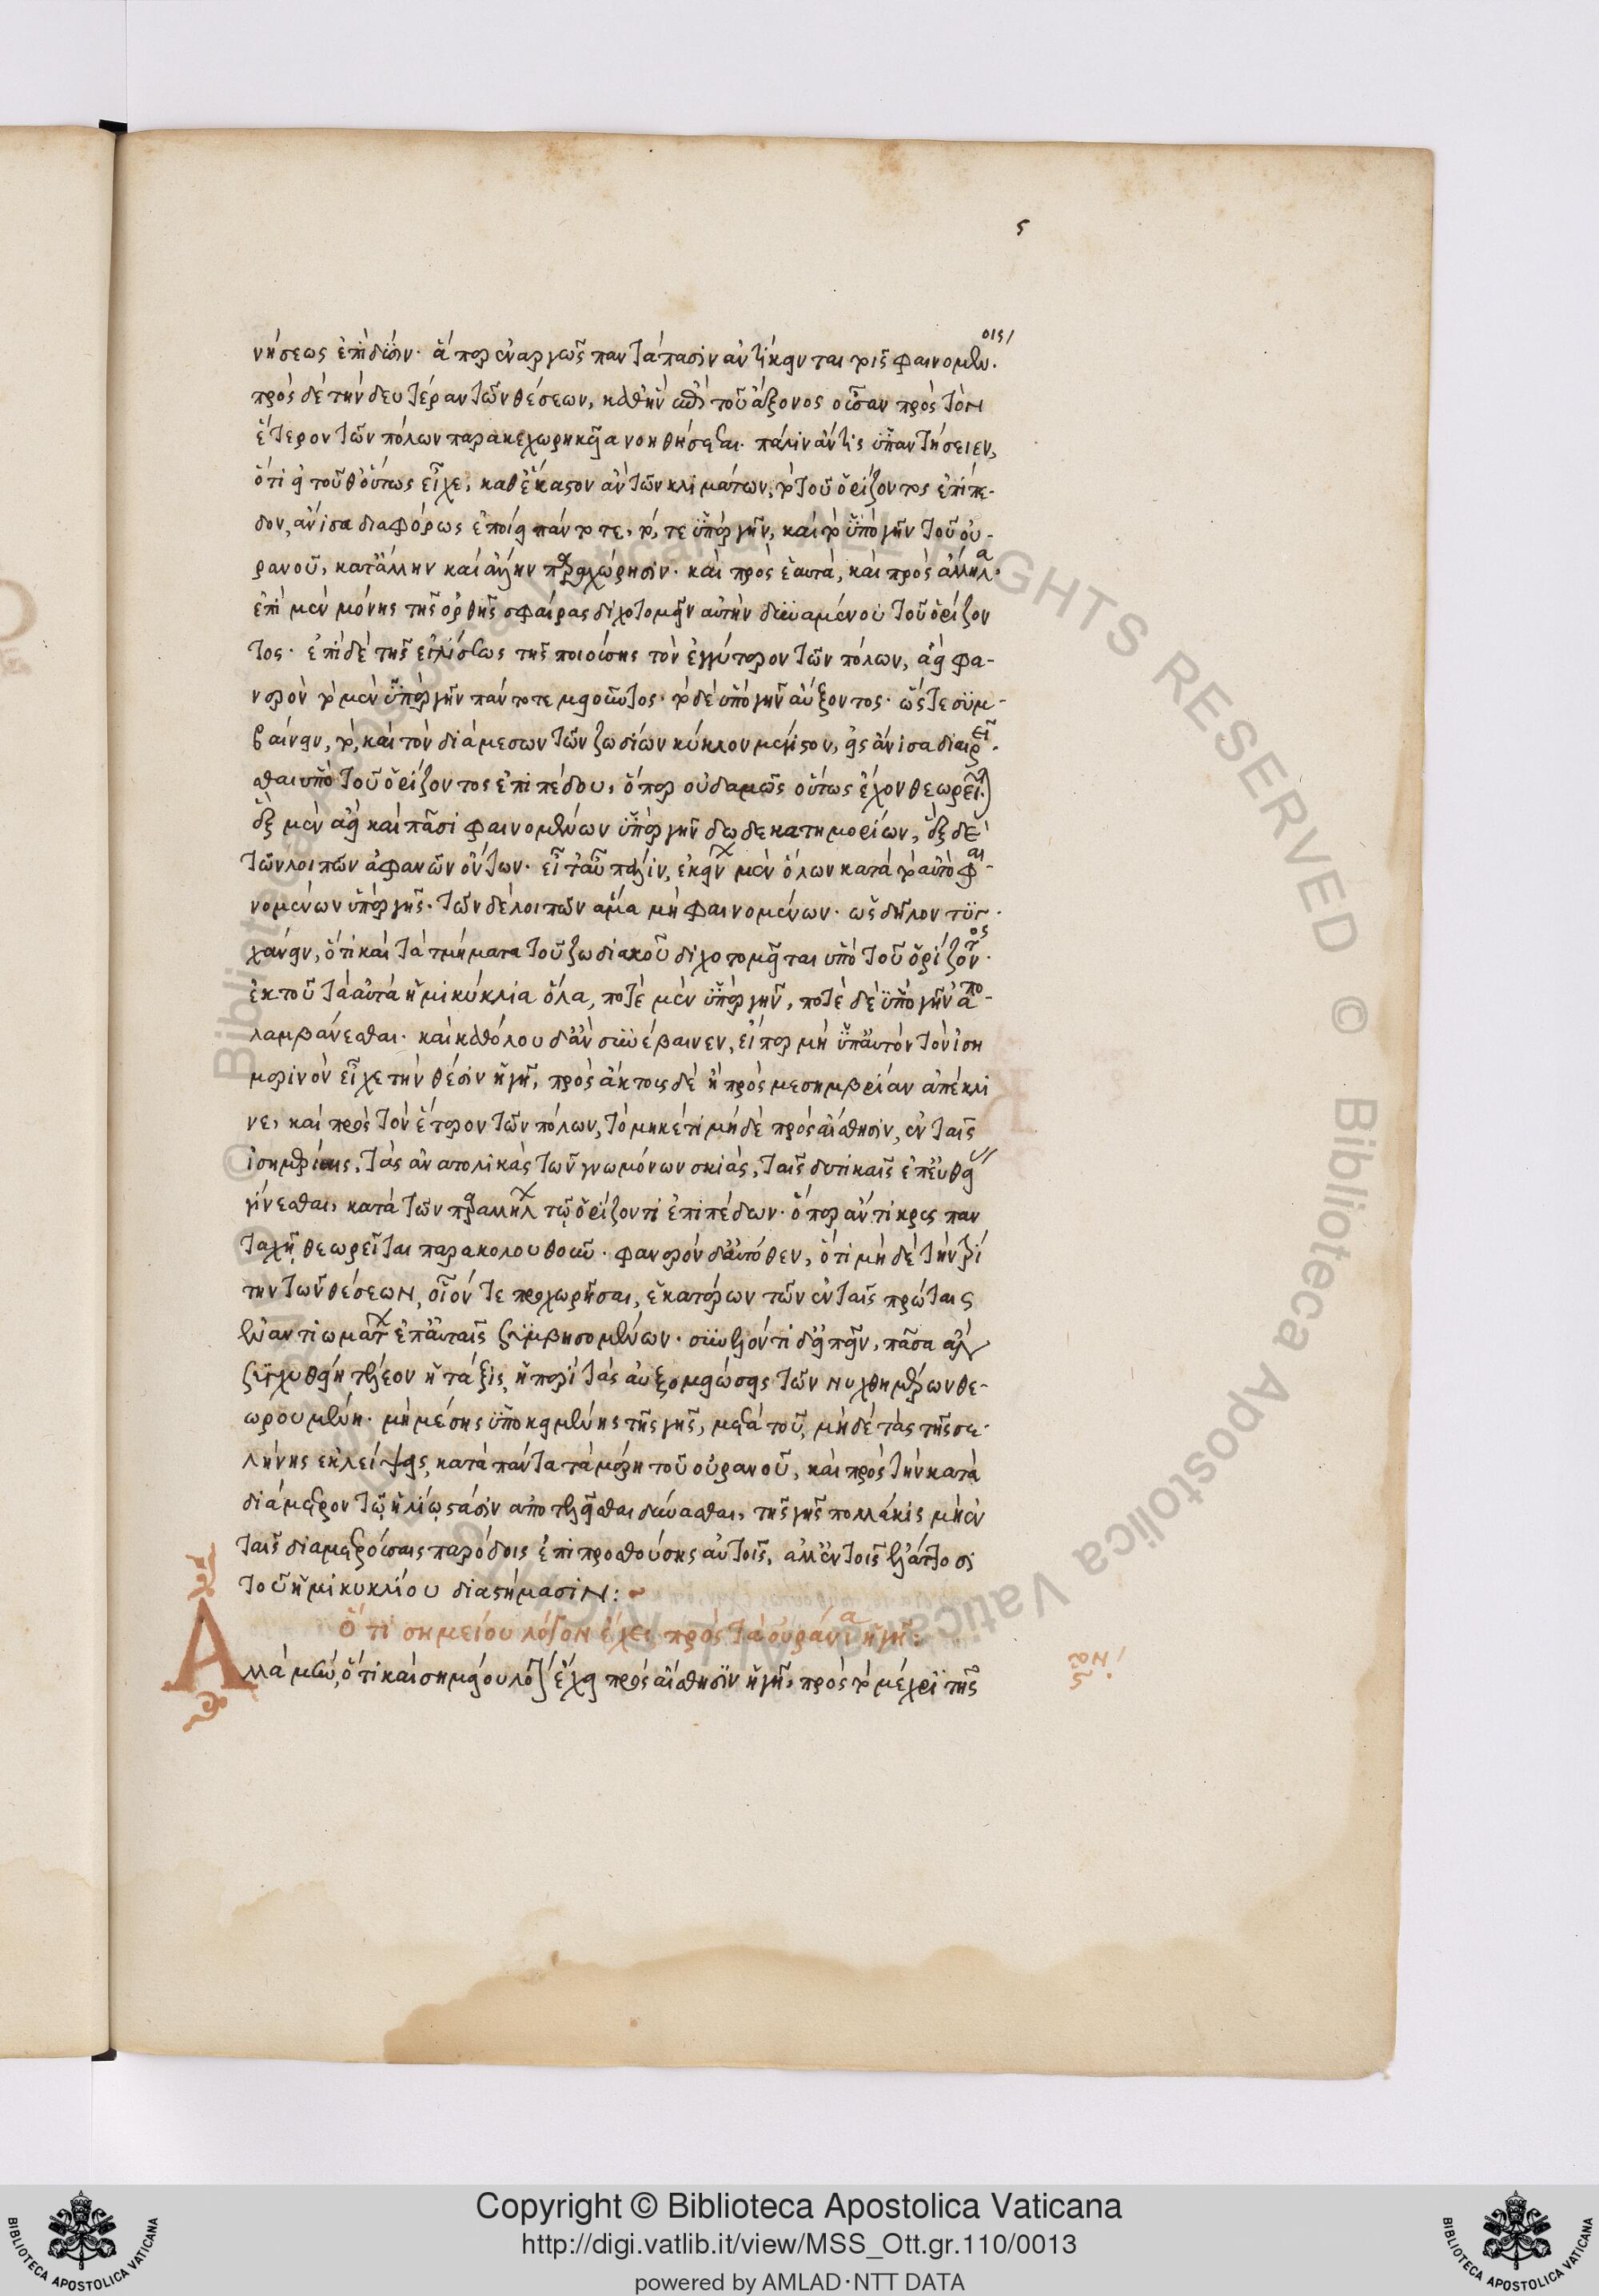 ς
νήσεως ἐπίδοσιν· ἅπερ ἐναργῶς παντάπασιν ἀντίκειται τοῖς φαινομένοις
πρὸς δὲ τὴν δευτέραν τῶν θέσεων, καθ' ἣν ἐπὶ τοῦ ἄξονος οὖσαν πρὸς τὸν
ἕτερον τῶν πόλων παρακεχωρηκυῖα νοηθήσεται. πάλιν ἄν τις ὑπαντήσειεν,
ὅτι εἰ τοῦθ' οὕτως εἶχε, καθ' ἕκαστον ἂν τῶν κλιμάτων, τὸ τοῦ ὁρίζοντος ἐπίπε-
δον, ἄνισα διαφόρως ἐποίει πάντοτε, τό, τε ὑπὲρ γῆν, καὶ τὸ ὑπὸ γῆν τοῦ οὐ-
ρανοῦ, κατ' ἄλλην καὶ ἄλλην παραχώρησιν· καὶ πρὸς ἑαυτά, καὶ πρὸς ἄλληλα·
ἐπὶ μὲν μόνης τῆς ὀρθῆς σφαίρας διχοτομεῖν αὐτὴν δυναμένου τοῦ ὁρίζον
τος· ἐπὶ δὲ τῆς ἐγκλίσεως τῆς ποιούσης τὸν ἐγγύτερον τῶν πόλων, ἀεὶ φα-
νερὸν τὸ μὲν ὑπὲρ γῆν πάντοτε μειοῦντος· τὸ δὲ ὑπὸ γῆν αὔξοντος· ὥστε συμ-
βαίνειν, τὸ, καὶ τὸν διὰ μέσων τῶν ζωδίων κύκλον μέγιστον, εἰς ἄνισα διαιρεῖ-
σθαι ὑπὸ τοῦ ὁρίζοντος ἐπιπέδου, ὅπερ οὐδαμῶς οὕτως ἔχον θεωρεῖται
ἓξ μὲν ἀεὶ καὶ πᾶσι φαινομένων ὑπὲρ γῆν δωδεκατημορίων, ἓξ δὲ
τῶν λοιπῶν ἀφανῶν ὄντων· εἶτ' αὖ πάλιν, ἐκείνων μὲν ὅλων κατὰ τὸ αὐτὸ φαι-
νομένων ὑπὲρ γῆς· τῶν δὲ λοιπῶν ἅμα μὴ φαινομένων· ὡς δῆλον τυγ-
χάνειν, ὅτι καὶ τὰ τμήματα τοῦ ζωδιακοῦ διχοτομεῖται ὑπὸ τοῦ ὁρίζοντος
ἐκ τοῦ τὰ αὐτὰ ἡμικύκλια ὅλα, ποτὲ μὲν ὑπὲρ γῆν, ποτὲ δὲ ὑπὸ γῆν ἀπο-
λαμβάνεσθαι· καὶ καθόλου δ' ἂν συνέβαινεν, εἴπερ μὴ ὑπ' αὐτὸν τὸν ἰση
μερινὸν εἶχε τὴν θέσιν ἡ γῆ, πρὸς ἄρκτους δὲ ἢ πρὸς μεσημβρίαν ἀπέκλι
νε, καὶ πρὸς τὸν ἕτερον τῶν πόλων, τὸ μηκέτι μηδὲ πρὸς αἴσθησιν, ἐν ταῖς
ἰσημερίαις, τὰς ἀνατολικὰς τῶν γνωμόνων σκιάς, ταῖς δυτικαῖς ἐπ' εὐθείας
γίνεσθαι, κατὰ τῶν παραλλήλων τῷ ὁρίζοντι ἐπιπέδων· ὅπερ ἄντικρυς παν
ταχῇ θεωρεῖται παρακολουθοῦν· φανερὸν δ' αὐτόθεν, ὅτι μηδὲ τὴν τρί
την τῶν θέσεων, οἷόν τε προχωρῆσαι, ἑκατέρων τῶν ἐν ταῖς πρώταις
ἐναντιωμάτων ἐπ' αὐταῖς συμβησομένων· συνελόντι δ' εἰπεῖν, πᾶσα ἂν
συγχυθείη τέλεον ἡ τάξις, ἡ περὶ τὰς αὐξομειώσεις τῶν νυχθημέρων θε-
ωρουμένη· μὴ μέσης ὑποκειμένης τῆς γῆς, μετὰ τοῦ, μηδὲ τὰς τῆς σε-
λήνης ἐκλείψεις, κατὰ πάντα τὰ μέρη τοῦ οὐρανοῦ, καὶ πρὸς τὴν κατὰ
διάμετρον τῷ ἡλίῳ στάσιν ἀποτελεῖσθαι δύνασθαι, τῆς γῆς πολλάκις μὴ ἐν
ταῖς διαμετρούσαις παρόδοις ἐπιπροσθούσης αὐτοῖς, ἀλλ' ἐν τοῖς ἐλάττοσι
τοῦ ἡμικυκλίου διαστήμασιν:~
Ὅτι σημείου λόγον ἔχει πρὸς τὰ οὐράνια ἡ γῆ:
Ἀλλὰ μὴν, ὅτι καὶ σημείου λόγον ἔχει πρὸς αἴσθησιν ἡ γῆ, πρὸς τὸ μέχρι τῆς
Copyright © Biblioteca Apostolica Vaticana
http://digi.vatlib.it/view/MSS_Ott.gr.110/0013
powered by AMLAD·NTT DATA